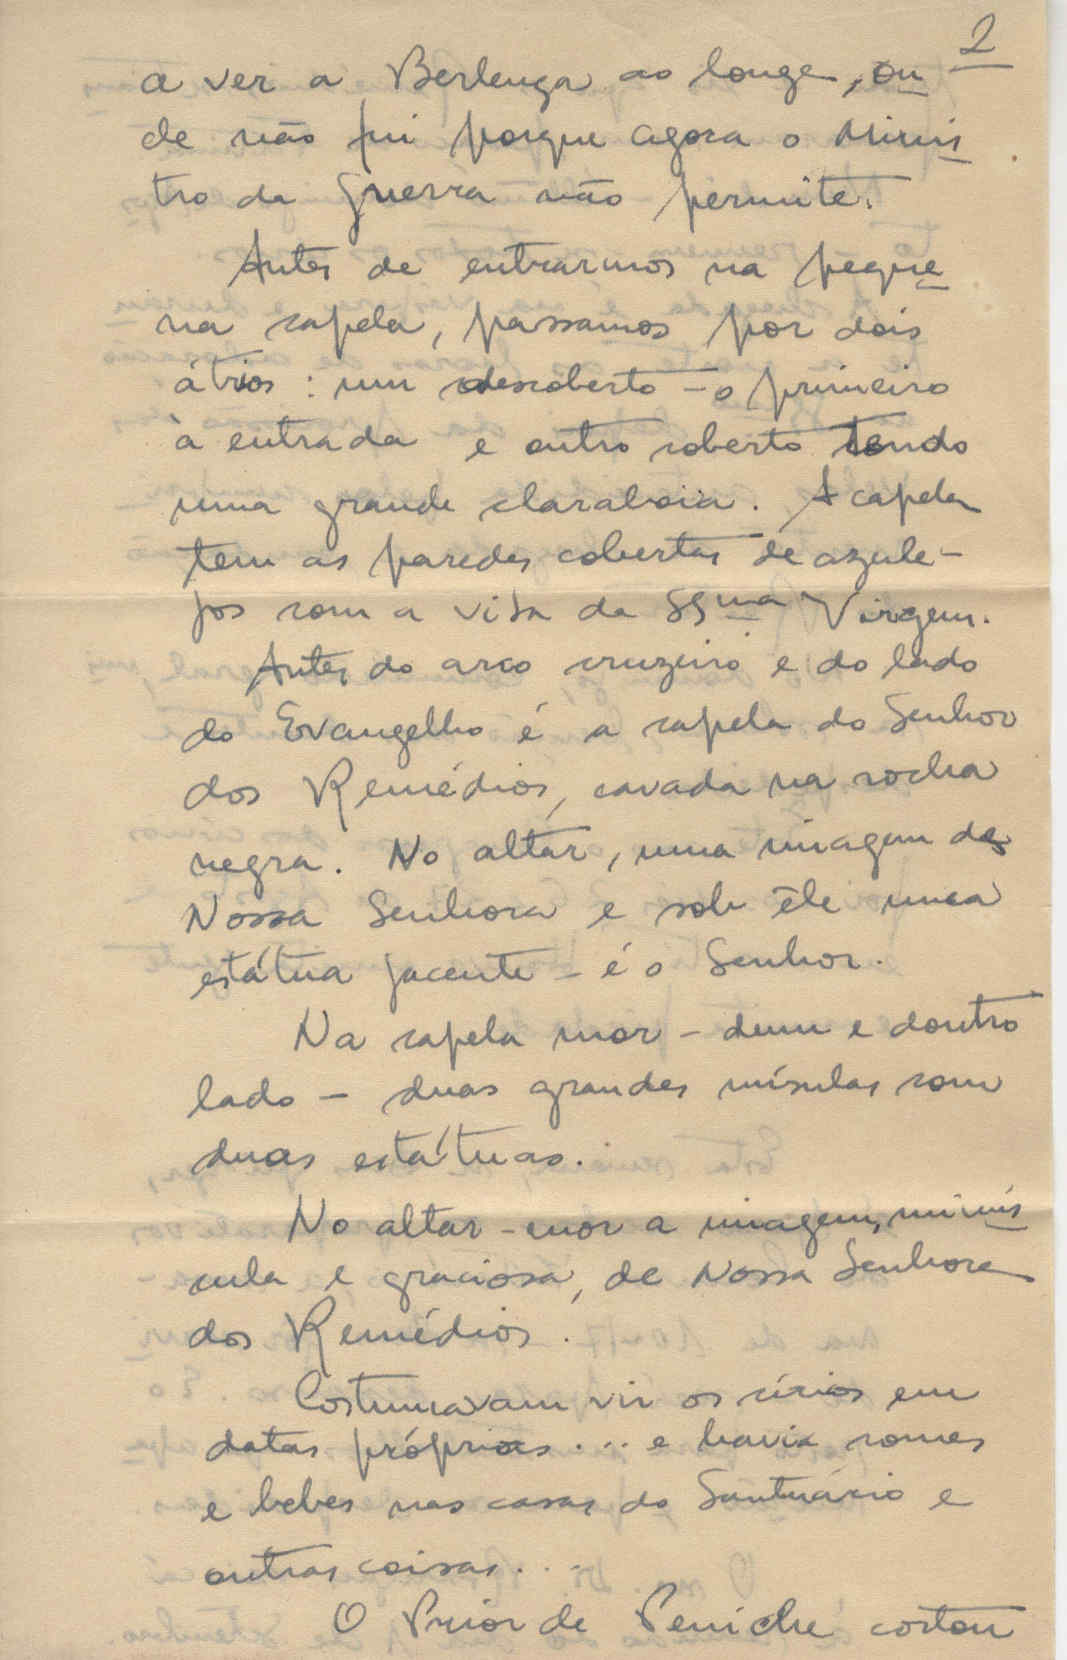 2
a ver a Berlenga ao longe, on
de não fui porque agora o Minis
tro da Guerra não permite.
Antes de entrarmos na peque
na capela, passamos por dois
átrios: um descoberto – o primeiro
à entrada e outro coberto tendo
uma grande claraboia. A capela
tem as paredes cobertas de azule-
jos com a vida da SSma Virgem.
Antes do arco cruzeiro e do lado
do Evangelho é a capela do Senhor
dos Remédios, cavada na rocha
negra. No altar, uma imagem de
Nossa Senhora e sob êle uma
estátua jacente – é o Senhor.
Na capela mor – dum e doutro
lado – duas grandes mísulas com
duas estátuas.
No altar-mor a imagem, minús
cula e graciosa, de Nossa Senhora
dos Remédios.
Costumavam vir os círios em
datas próprias... e havia comes
e bebes nas casas do Santuário e
outras coisas...
O Prior de Peniche cortou